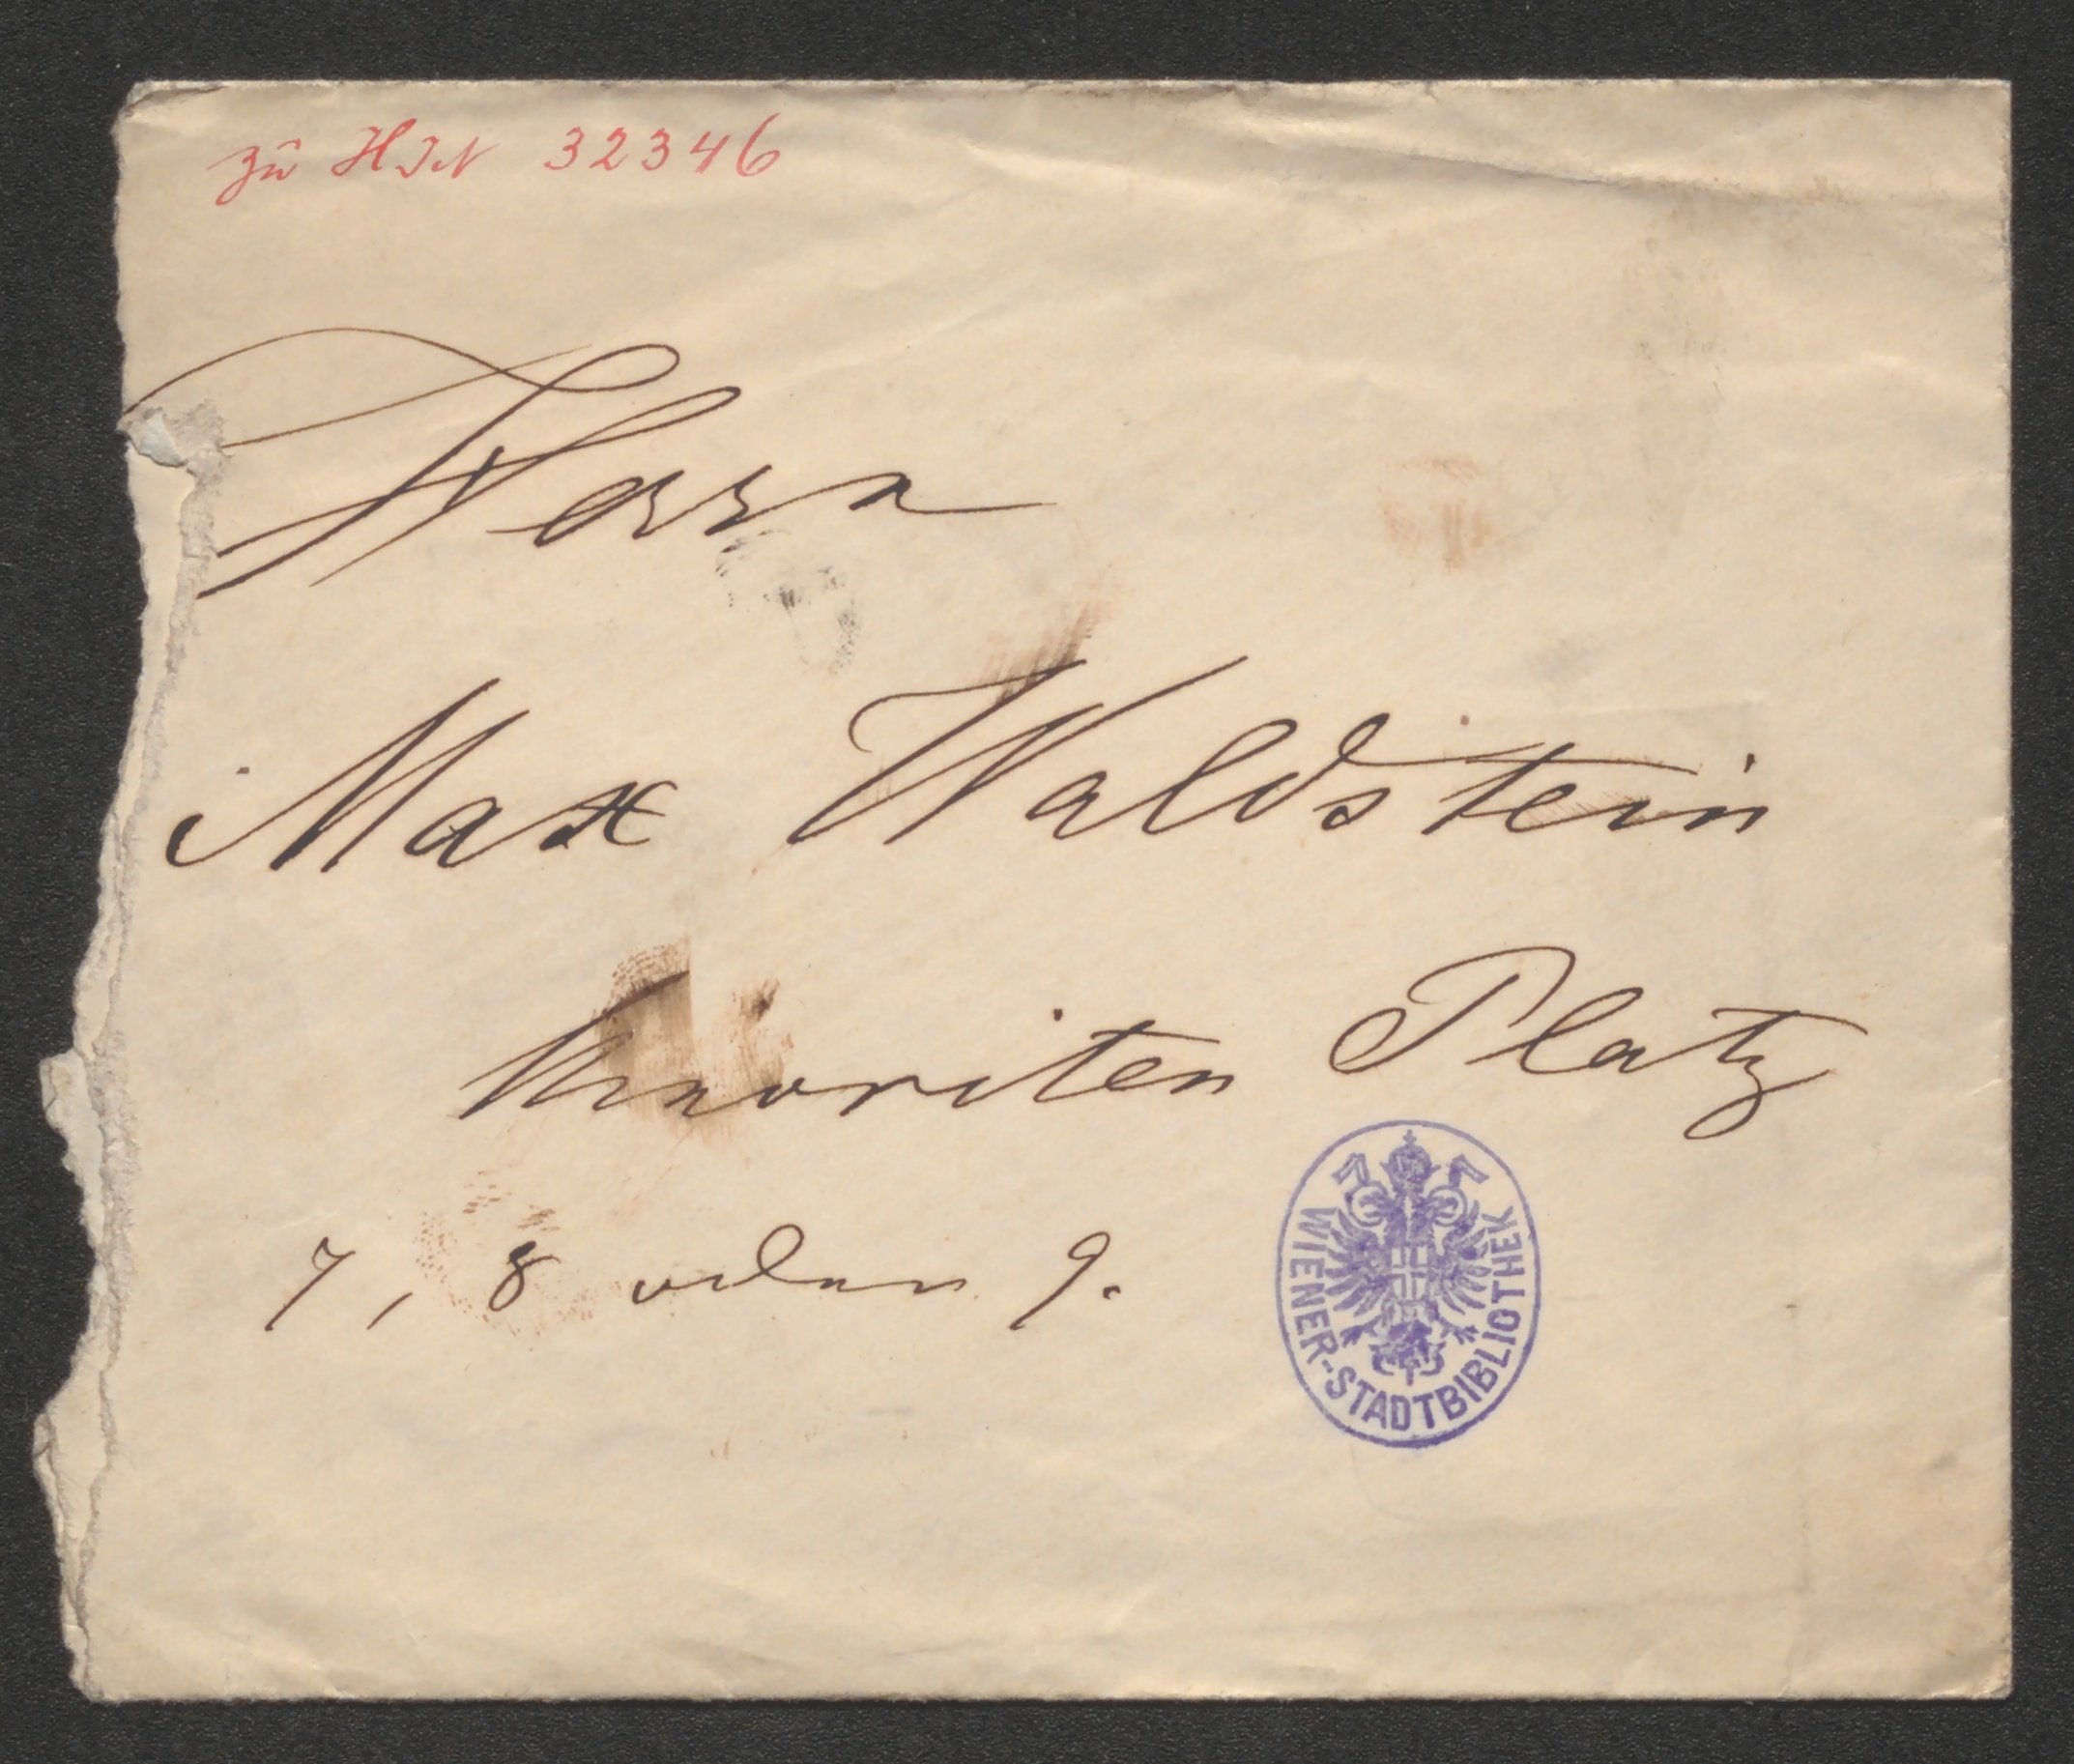 zu HIN 32346
Herrn
Max Waldstein
Minoriten Platz
7, 8 oder 9.
WIENER-STADTBIBLIOTHEK